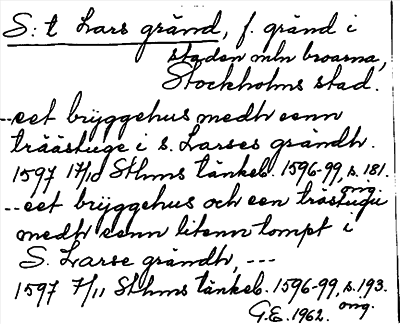 S:t Lars gränd, f. gränd i
staden mln broarna,
Stockholms stad.
--eet bryggehus medh eenn
träästuge i s. Larses grändh.
1597 17/10 Sthms tänkeb. 1596-99, s. 181.
orig.
--eet bryggehus och een trästugu
medh eenn litenn tompt i
S. Larse grändh, ---
1597 7/11 Sthms tänkeb. 1596-99, s. 193.
orig.
G.E. 1962.